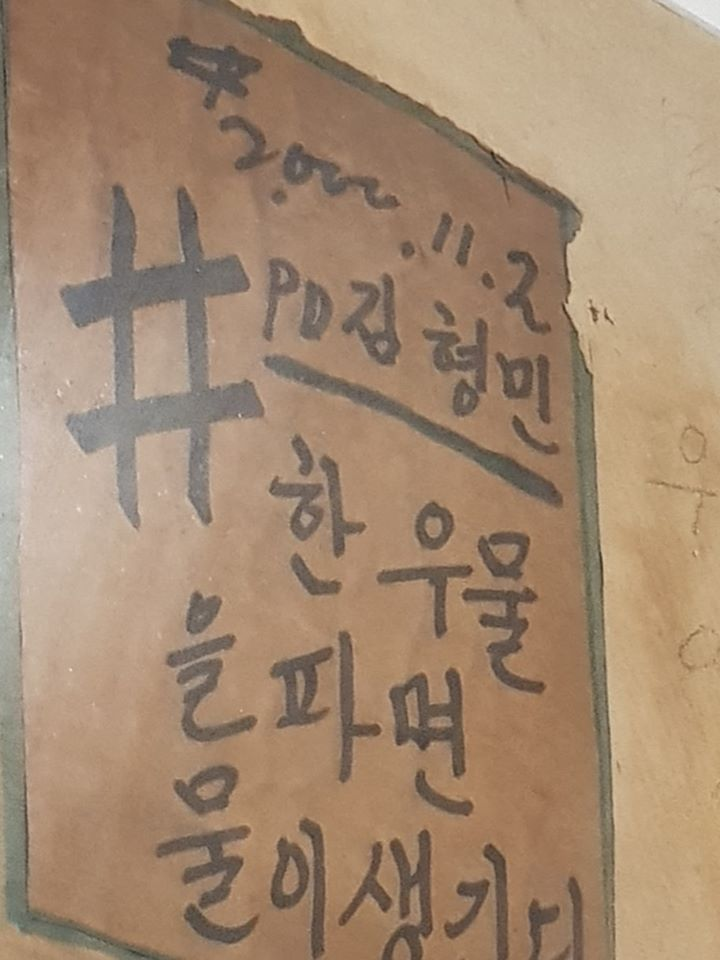 # 2000.11.2
# PD김 형민
한 우물
을 파면
물이 생기다